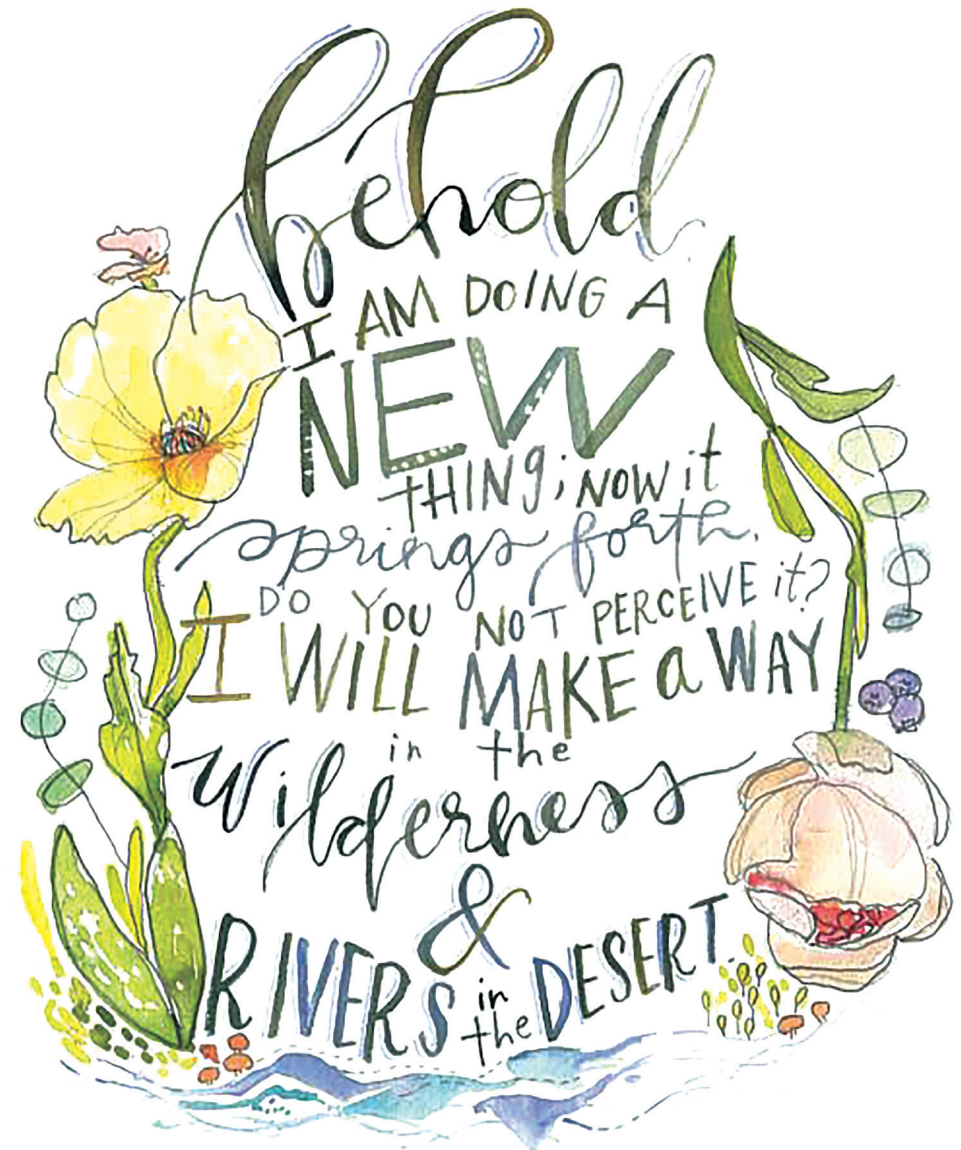 behold
I AM DOING A
NEW
THING; NOW it
springs forth.
DO YOU NOT PERCEIVE it?
I WILL MAKE a WAY
in the
wilderness
&
RIVERS in the DESERT.